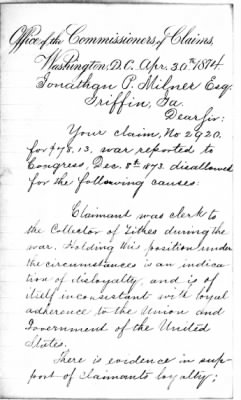 Office of the Commissioners of Claims,
Washington, D.C. Apr. 30th 1874
Jonathan P. Milner Esq.
Griffin, Ga.
Dear Sir:
Your claim, No 2920.
for $78.13. was reported to
Congress, Dec. 8th 1873. disallowed
for the following causes:
Claimant was clerk to
the Collector of Tithes during the
war. Holding this position under
the circumstances is an indica
tion of disloyalty, and is of
itself inconsistant with loyal
adherence to the Union and
Government of the United
States.
There is evidence in sup-
port of claimants loyalty;